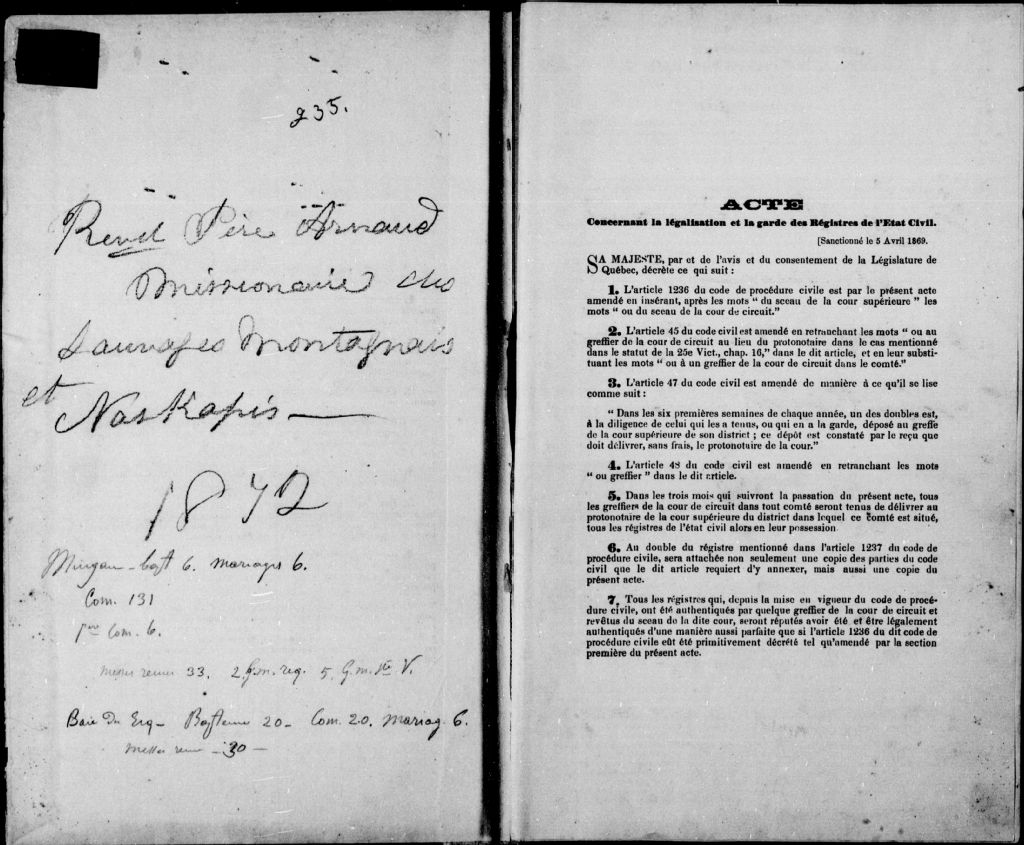 235.
Revd Père Arnaud
Missionaire des
Sauvages Montagnais
et
Naskapis
1872
Mingan - bapt 6. mariages 6.
Com. 131
1ère Com. 6.
Messes 33. 2 G.m. req. 5 G.m. Ste V.
Baie du - Baptême 20 - Com. 20. Mariag. 6.
Messes - 30 -
ACTE
Concernant la légalisation et la garde des Régistres de l'Etat Civil.
[Sanctionné le 5 Avril 1869.
SA MAJESTE, par et de l'avis et du consentement de la Législature de
Québec, décrète ce qui suit :
1. L'article 1236 du code de procédure civile est par le présent acte
amendé en insérant, après les mots " du sceau de la cour supérieure " les
mots " ou du sceau de la cour de circuit."
2. L'article 45 du code civil est amendé en retranchant les mots " ou au
greffier de la cour de circuit au lieu du protonotaire dans le cas mentionné
dans le statut de la 25e Vict., chap. 16," dans le dit article, et en leur substi-
tuant les mots " ou à un greffier de la cour de circuit dans le comté."
3. L'article 47 du code civil est amendé de manière à ce qu'il se lise
comme suit :
" Dans les six premières semaines de chaque année, un des doubles est,
à la diligence de celui qui les a tenus, ou qui en a la garde, déposé au greffe
de la cour supérieure de son district ; ce dépôt est constaté par le reçu que
doit délivrer, sans frais, le protonotaire de la cour."
4. L'article 48 du code civil est amendé en retranchant les mots
" ou greffier " dans le dit article.
5. Dans les trois mois qui suivront la passation du présent acte, tous
les greffiers de la cour de circuit dans tout comté seront tenus de délivrer au
protonotaire de la cour supérieure du district dans lequel ce comté est situé,
tous les régistres de l'état civil alors en leur possession
6. Au double du régistre mentionné dans l'article 1237 du code de
procédure civile, sera attachée non seulement une copie des parties du code
civil que le dit article requiert d'y annexer, mais aussi une copie du
présent acte.
7. Tous les régistres qui, depuis la mise en vigueur du code de procé-
dure civile, ont été authentiqués par quelque greffier de la cour de circuit et
revêtus du sceau de la dite cour, seront réputés avoir été et être légalement
authentiqués d'une manière aussi parfaite que si l'article 1236 du dit code de
procédure civile eût été primitivement décrété tel qu'amendé par la section
première du présent acte.